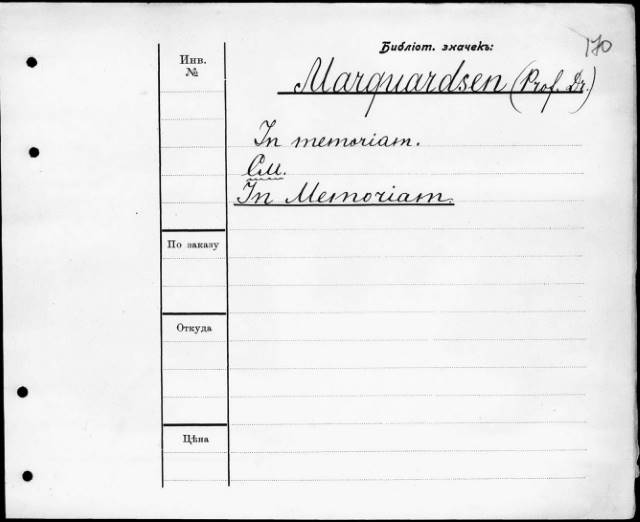 Библіот. значекъ:
170
Инв.
№
Marquardsen (Prof. Dr.)
In memoriam.
См.
In Memoriam.
По заказу
Откуда
Цѣна